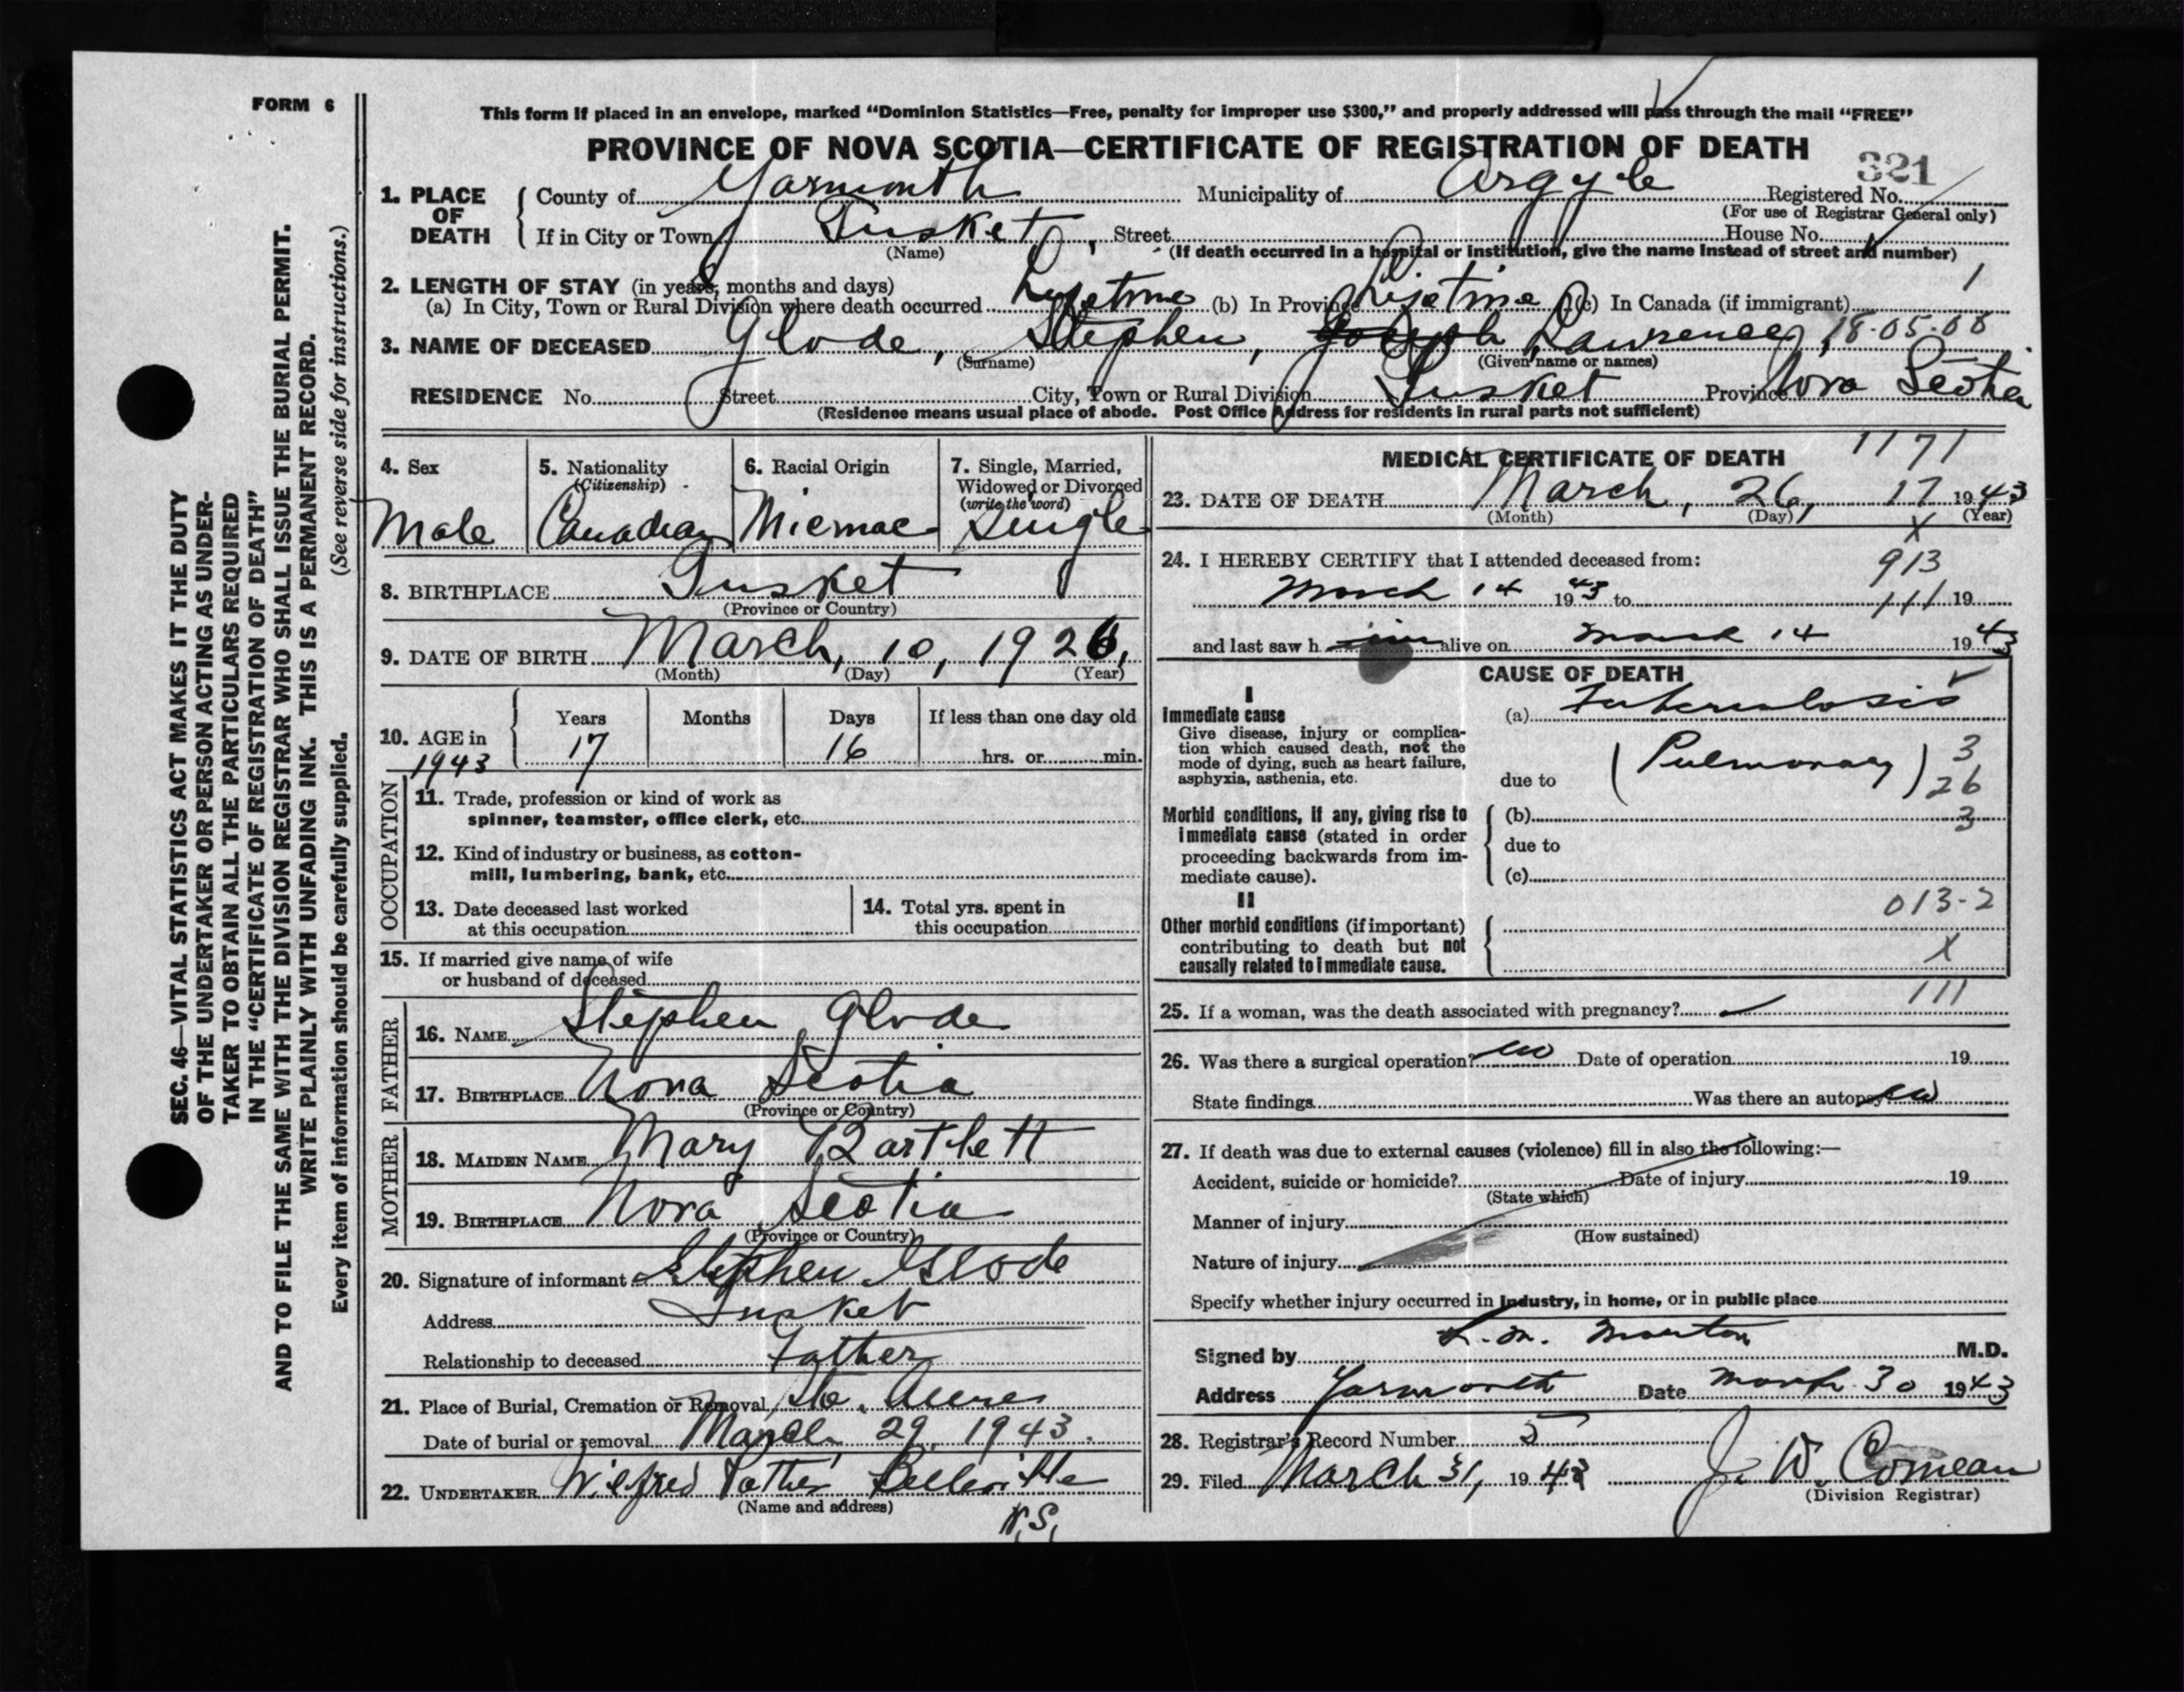 FORM 6
This form if placed in an envelope, marked "Dominion Statistics—Free, penalty for improper use $300," and properly addressed will pass through the mail "FREE"
PROVINCE OF NOVA SCOTIA—CERTIFICATE OF REGISTRATION OF DEATH
321
1. PLACE OF DEATH { County of Yarmouth Municipality of Argyle Registered No.
(For use of Registrar General only)
If in City or Town Tusket, Street House No.
(Name) (If death occurred in a hospital or institution, give the name instead of street and number)
2. LENGTH OF STAY (in years, months and days) 1
(a) In City, Town or Rural Division where death occurred Lifetime (b) In Province Lifetime (c) In Canada (if immigrant)
3. NAME OF DECEASED Glode, Stephen, Joseph Lawrence, 18-05-08
(Surname) (Given name or names)
RESIDENCE No. Street City, Town or Rural Division Tusket Province Nova Scotia
(Residence means usual place of abode. Post Office Address for residents in rural parts not sufficient)
4. Sex
Male
5. Nationality
(Citizenship)
Canadian
6. Racial Origin
Micmac
7. Single, Married,
Widowed or Divorced
(write the word)
Single
8. BIRTHPLACE Tusket
(Province or Country)
9. DATE OF BIRTH March, 10, 1926,
(Month) (Day) (Year)
10. AGE in 1943 { Years Months Days If less than one day old
17 16 hrs. or min.
OCCUPATION
11. Trade, profession or kind of work as
spinner, teamster, office clerk, etc.
12. Kind of industry or business, as cotton-
mill, lumbering, bank, etc.
13. Date deceased last worked
at this occupation
14. Total yrs. spent in
this occupation
15. If married give name of wife
or husband of deceased
FATHER
16. NAME Stephen Glode
17. BIRTHPLACE Nova Scotia
(Province or Country)
MOTHER
18. MAIDEN NAME Mary Bartlett
19. BIRTHPLACE Nova Scotia
(Province or Country)
20. Signature of informant Stephen Glode
Address Tusket
Relationship to deceased Father
21. Place of Burial, Cremation or Removal Ste. Annes
Date of burial or removal March 29, 1943.
22. UNDERTAKER Wilfred Pothier Belleville
(Name and address)
N.S.
MEDICAL CERTIFICATE OF DEATH 1171
23. DATE OF DEATH March, 26, 17 1943
(Month) (Day) (Year)
X
24. I HEREBY CERTIFY that I attended deceased from: 913
March 14 1943 to 111 19
and last saw h im alive on March 14 1943
CAUSE OF DEATH
I
Immediate cause
Give disease, injury or complica-
tion which caused death, not the
mode of dying, such as heart failure,
asphyxia, asthenia, etc.
(a) Tuberculosis
due to (Pulmonary) 3
26
Morbid conditions, if any, giving rise to
immediate cause (stated in order
proceeding backwards from im-
mediate cause).
(b) 3
due to
(c)
II
Other morbid conditions (if important)
contributing to death but not
causally related to immediate cause.
013-2
X
111
25. If a woman, was the death associated with pregnancy?
26. Was there a surgical operation? no Date of operation 19
State findings Was there an autopsy? no
27. If death was due to external causes (violence) fill in also the following:—
Accident, suicide or homicide? Date of injury 19
(State which)
Manner of injury
(How sustained)
Nature of injury
Specify whether injury occurred in industry, in home, or in public place
Signed by L. M. Morton M.D.
Address Yarmouth Date March 30 1943
28. Registrar's Record Number 5
29. Filed March 31, 1943 J. W. Comeau
(Division Registrar)
SEC. 46—VITAL STATISTICS ACT MAKES IT THE DUTY
OF THE UNDERTAKER OR PERSON ACTING AS UNDER-
TAKER TO OBTAIN ALL THE PARTICULARS REQUIRED
IN THE "CERTIFICATE OF REGISTRATION OF DEATH"
AND TO FILE THE SAME WITH THE DIVISION REGISTRAR WHO SHALL ISSUE THE BURIAL PERMIT.
WRITE PLAINLY WITH UNFADING INK. THIS IS A PERMANENT RECORD.
Every item of information should be carefully supplied. (See reverse side for instructions.)